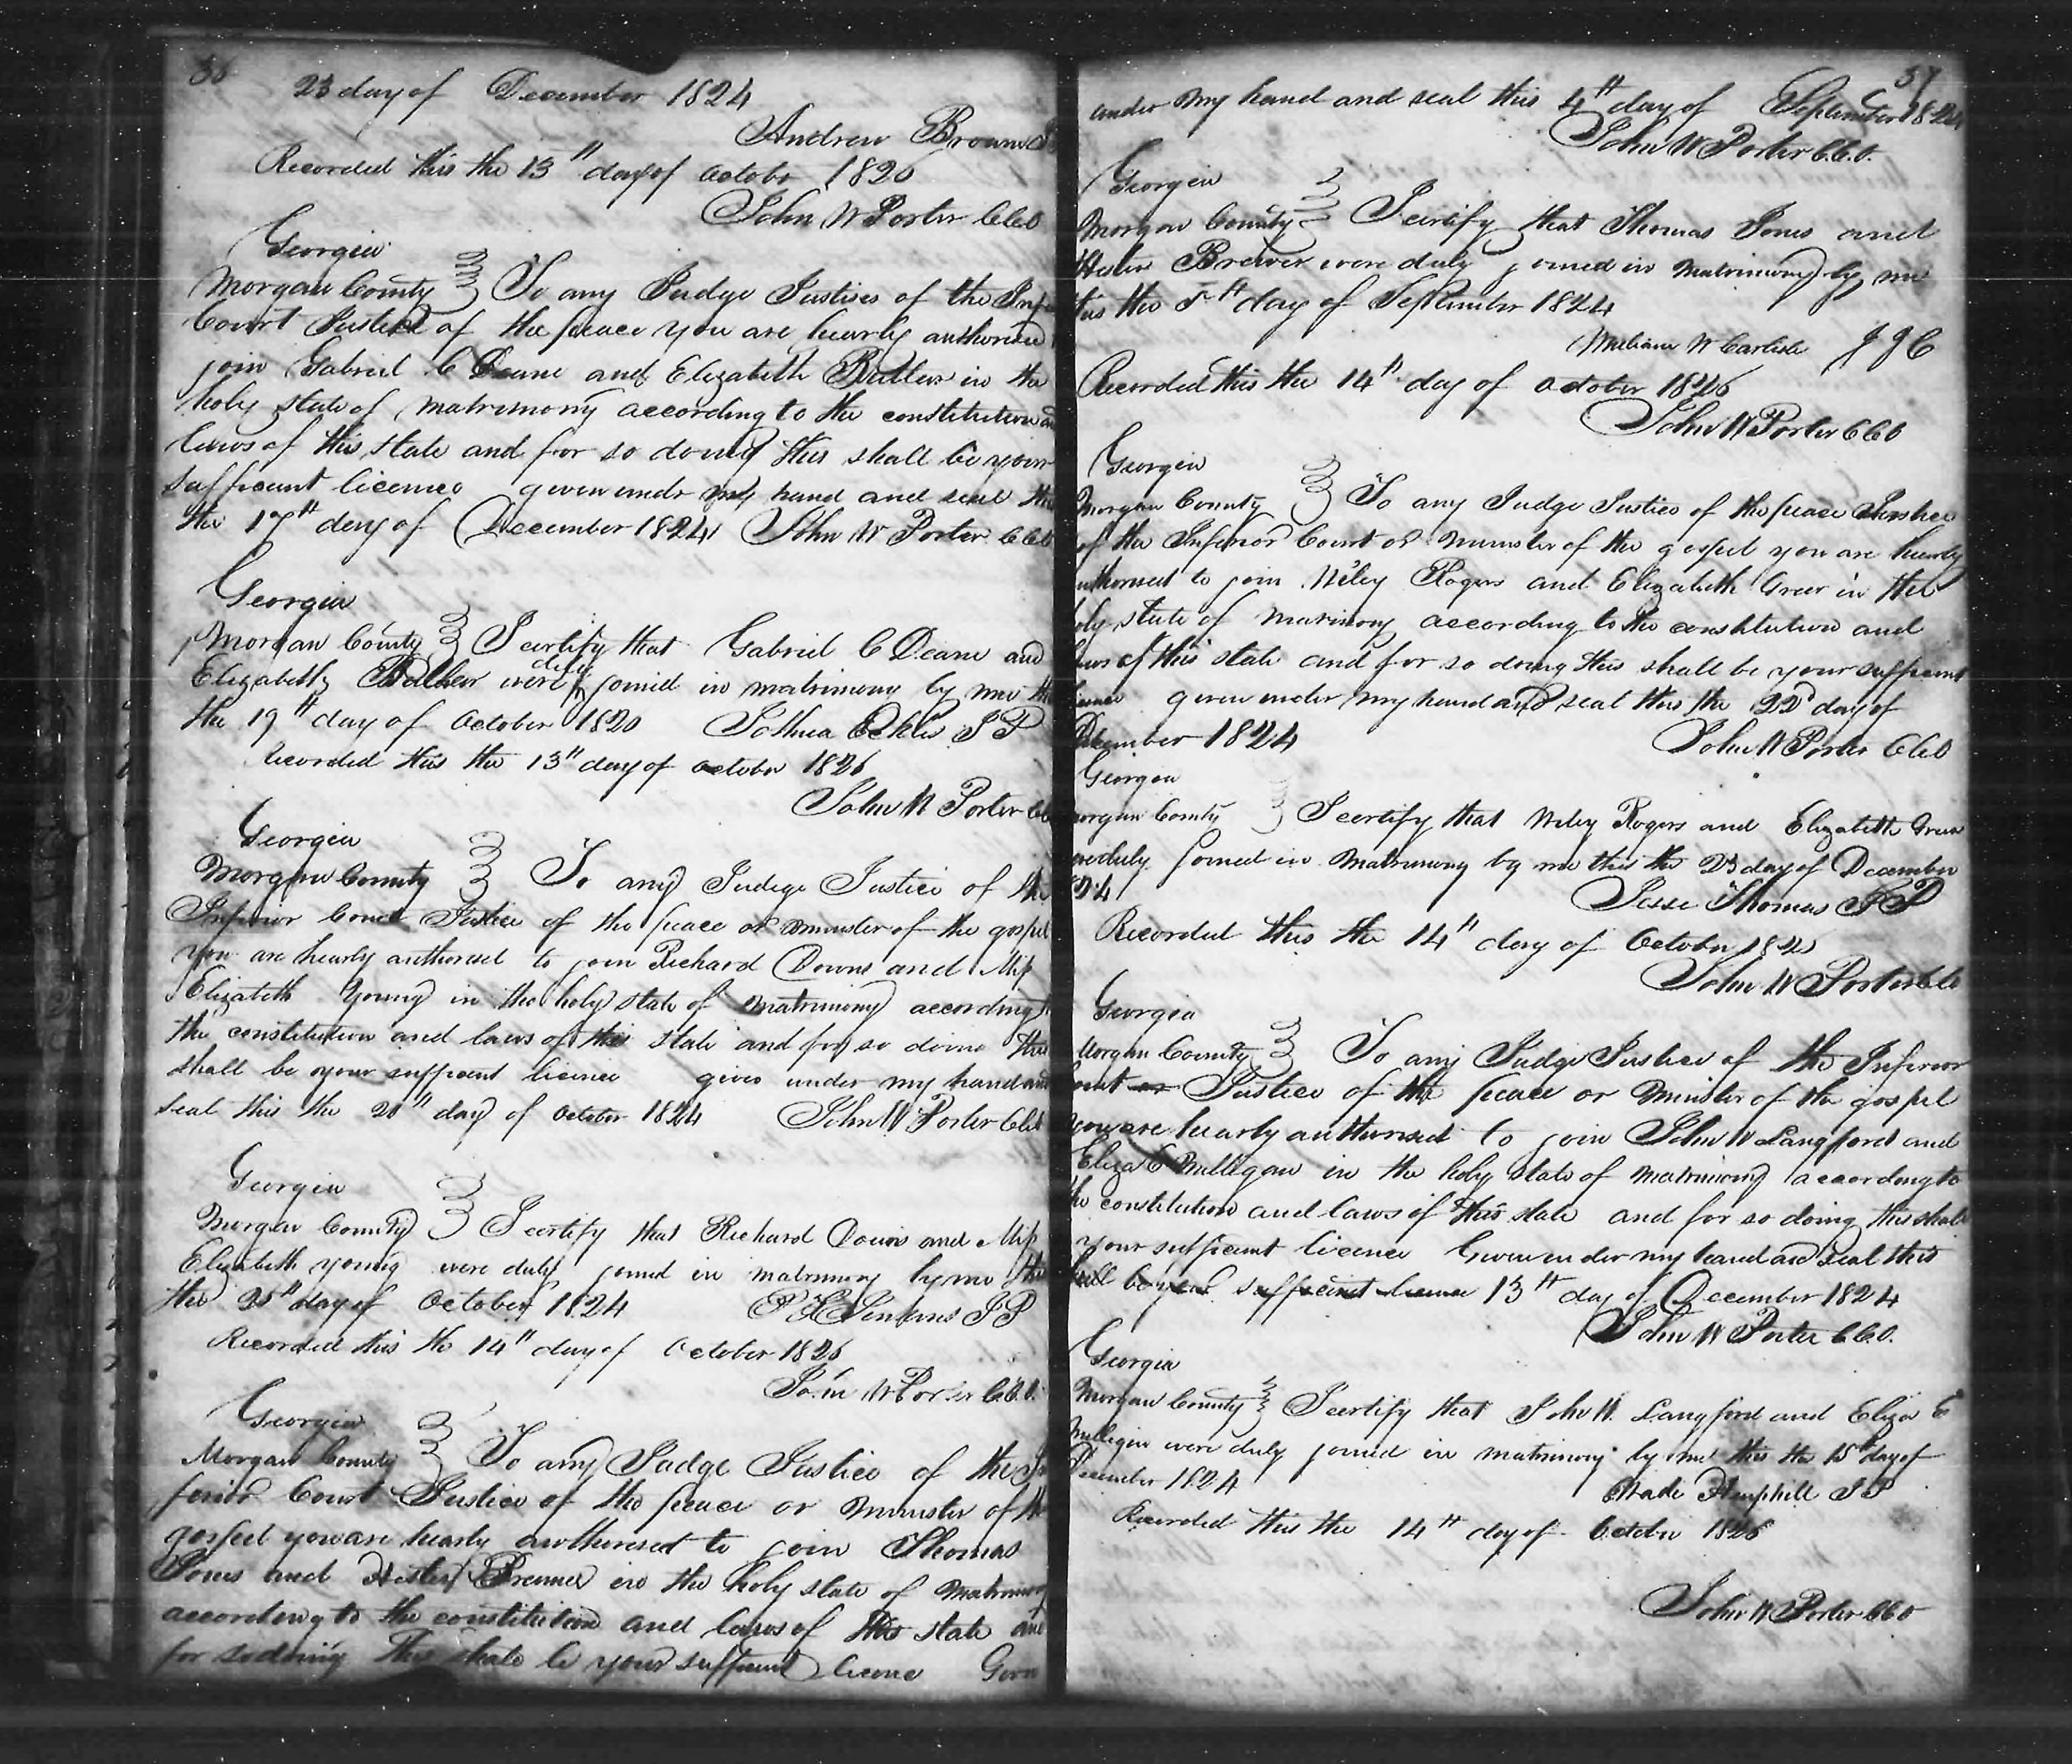 36
23 day of December 1824
Andrew Brown
Recorded this the 13th day of October 1826
John W Porter CCO
Georgia
Morgan County To any Judge Justises of the Infe
Court Justice of the peace you are hearly authorised
join Gabriel C Deane and Elizabeth Butler in the
holy state of matrimony according to the constitution and
laws of this state and for so doing this shall be your
sufficant licence given under my hand and seal this
the 17th day of December 1824 John W Porter CCO
Georgia
Morgan County I certify that Gabriel C Deane and
Elizabeth Butler were duly joined in matrimony by me this
the 19th day of October 1820 Joshua Eckles JP
Recorded this the 13th day of october 1826
John W Porter CCO
Georgia
Morgan County To any Judge Justice of the
Inferior Court Justice of the peace or minister of the gospel
you are hearly authorised to join Richard Downs and Miss
Elizabeth Young in the holy state of matrimony according to
the constitution and laws of this state and for so doing this
shall be your sufficent licence given under my hand and
seal this the 20th day of october 1824 John W Porter CCO
Georgia
Morgan County I certify that Richard Downs and Miss
Elizabeth young were duly joined in matrimony by me this
the 25th day of October 1824 Jenkins JP
Recorded this the 14th day of October 1826
John W Porter CCO
Georgia
Morgan County To any Judge Justice of the In
ferior Court Justice of the peace or minister of the
gospel you are hearly authorised to join Thomas
Jones and Hester Brewer in the holy state of matrimony
according to the constitution and laws of this state and
for so doing This shall be your sufficient licence Given
37
under my hand and seal this 4th day of September 1824
John W Porter CCO.
Georgia
Morgan County I certify that Thomas Jones and
Hester Brewer were duly joined in matrimony by me
this the 5th day of September 1824
William W Carlisle JJC
Recorded this the 14th day of october 1826
John W Porter CCO
Georgia
Morgan County To any Judge Justice of the peace Justice
of the Inferior Court or minister of the gospel you are hearly
authorised to join Wiley Rogers and Elizabeth Greer in the
holy state of matrimony according to the constitution and
laws of this state and for so doing this shall be your sufficient
licence given under my hand and seal this the 22d day of
December 1824 John W Porter CCO
Georgia
Morgan County I certify that Wiley Rogers and Elizabeth Greer
were duly joined in matrimony by me this the 23 day of December
1824 Jesse Thomas JP
Recorded this the 14th day of October 182
John W Porter CCO
Georgia
Morgan County To any Judge Justice of the Inferior
Court or Justice of the peace or minister of the gospel
you are hearly authorised to join John W Langford and
Eliza E Milligan in the holy state of matrimony according to
the constitution and laws of this state and for so doing this shall
your sufficient licence Given under my hand and seal this
shall be your sufficient licence 13th day of December 1824
John W Porter CCO.
Georgia
Morgan County I certify that John W. Langford and Eliza E
Milligin were duly joined in matrimony by me this the 15th day of
December 1824 Wade Hemphill JP
Recorded this the 14th day of October 1826
John W Porter CCO